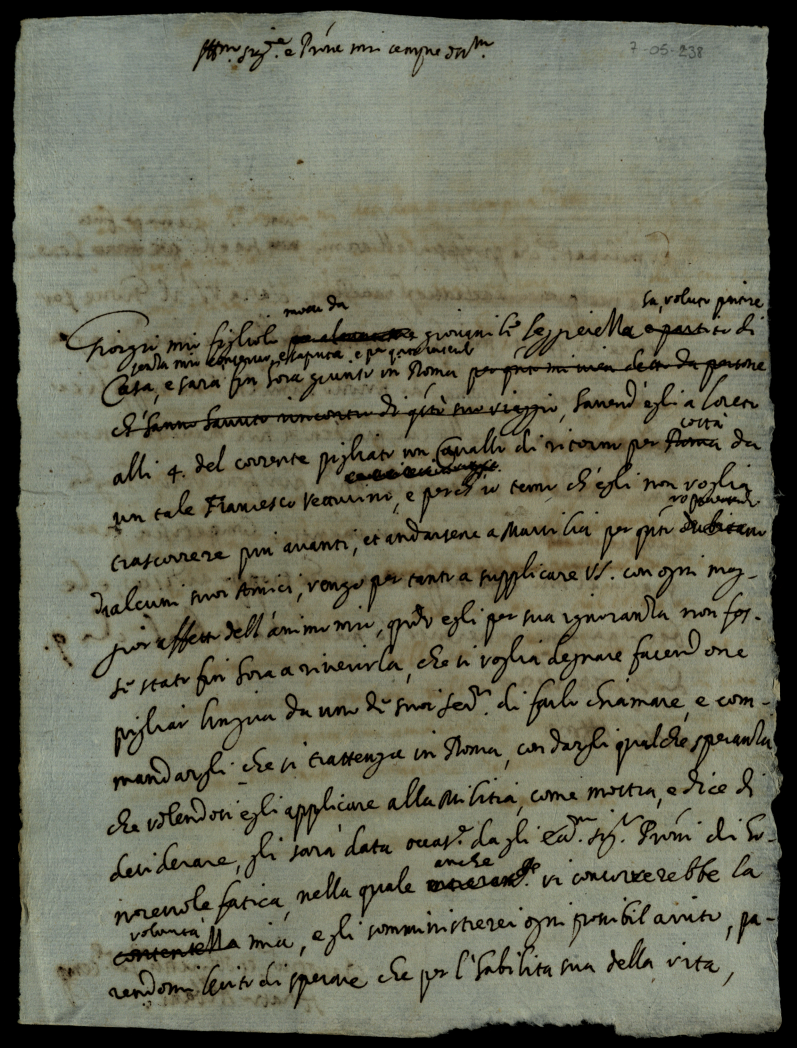 7-05-238
Ill.mo Sig.re e Prone mio sempre
mosso da ha voluto partire
Giorgio mio figliolo giovanil leggierella e partito di
senza mio consenso, e saputa, e per
Casa, e sarà fin hora giunto in Roma per q.to mi vien detto da persone
ch'hanno havuto rincontro di q.to suo viaggio, havend'egli a Loreto
costà
alli 4. del corrente pigliato un Cavallo di ritorno per Roma da
un tale Francesco Vetturino, e perch'io temo ch'egli non voglia
trascorrere più avanti, et andarsene a per q.to dubitano
d'alcuni suoi Amici, vengo per tanto a supplicare VS. con ogni mag-
gior affetto dell'animo mio, q.do egli per sua ignoranza non fos-
se stato fin hora a riverirla, che si voglia degnare facendone
pigliar lingua da uno de suoi Ser.ri di farlo chiamare, e com-
mandargli che si trattenga in Roma, con dargli qualche speranza
che volendosi egli applicare alla Militia, come mostra, e dice di
desiderare, gli sarà data occas.e dagli ecc.mi Sig.ri Proni di ho-
anche
norevole fatica, nella quale vi concorrerebbe la
volontà
contentella mia, e gli somministrerei ogni possibil aiuto, pa-
rendomi lecito di sperare che per l'habilità sua della vita,